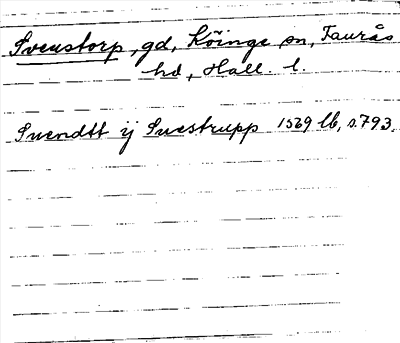 Svenstorp, gd, Köinge sn, Faurås
hd, Hall. l.
Suendtt ij Suestrupp 1569 lb, s. 793.